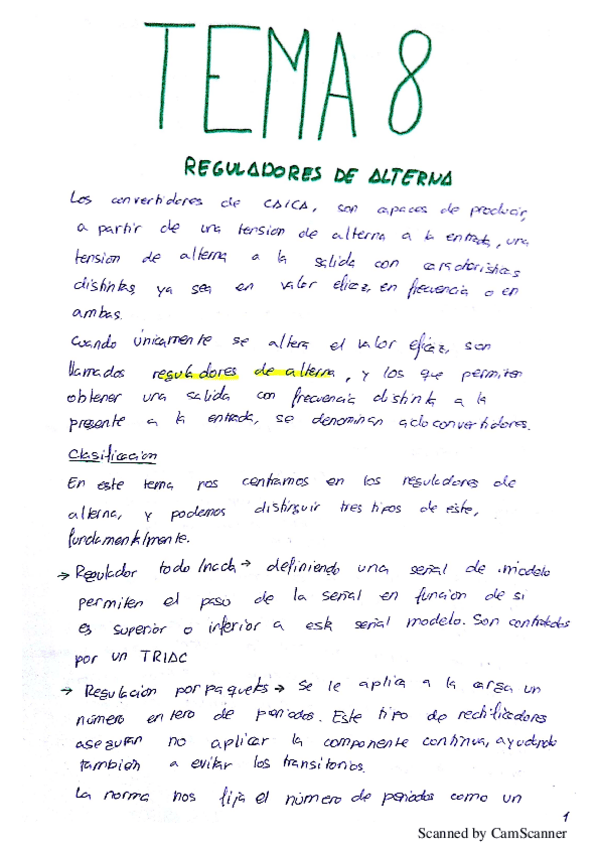 TEMA 8
REGULADORES DE ALTERNA
Los convertidores de CA/CA, son capaces de producir,
a partir de una tension de alterna a la entrada, una
tension de alterna a la salida con características
distintas, ya sea en valor eficaz, en frecuencia o en
ambas.
Cuando únicamente se altera el valor eficaz, son
llamados reguladores de alterna, y los que permiten
obtener una salida con frecuencia distinta a la
presente a la entrada, se denominan cicloconvertidores.
Clasificacion
En este tema nos centramos en los reguladores de
alterna, y podemos distinguir tres tipos de este,
fundamentalmente.
→ Regulador todo/nada → definiendo una señal de modelo
permiten el paso de la señal en funcion de si
es superior o inferior a esta señal modelo. Son controlados
por un TRIAC
→ Regulacion por paquetes → se le aplica a la carga un
número entero de periodos. Este tipo de rectificadores
aseguran no aplicar la componente continua, ayudando
tambien a evitar los transitorios.
La norma nos fija el número de periodos como un
1
Scanned by CamScanner